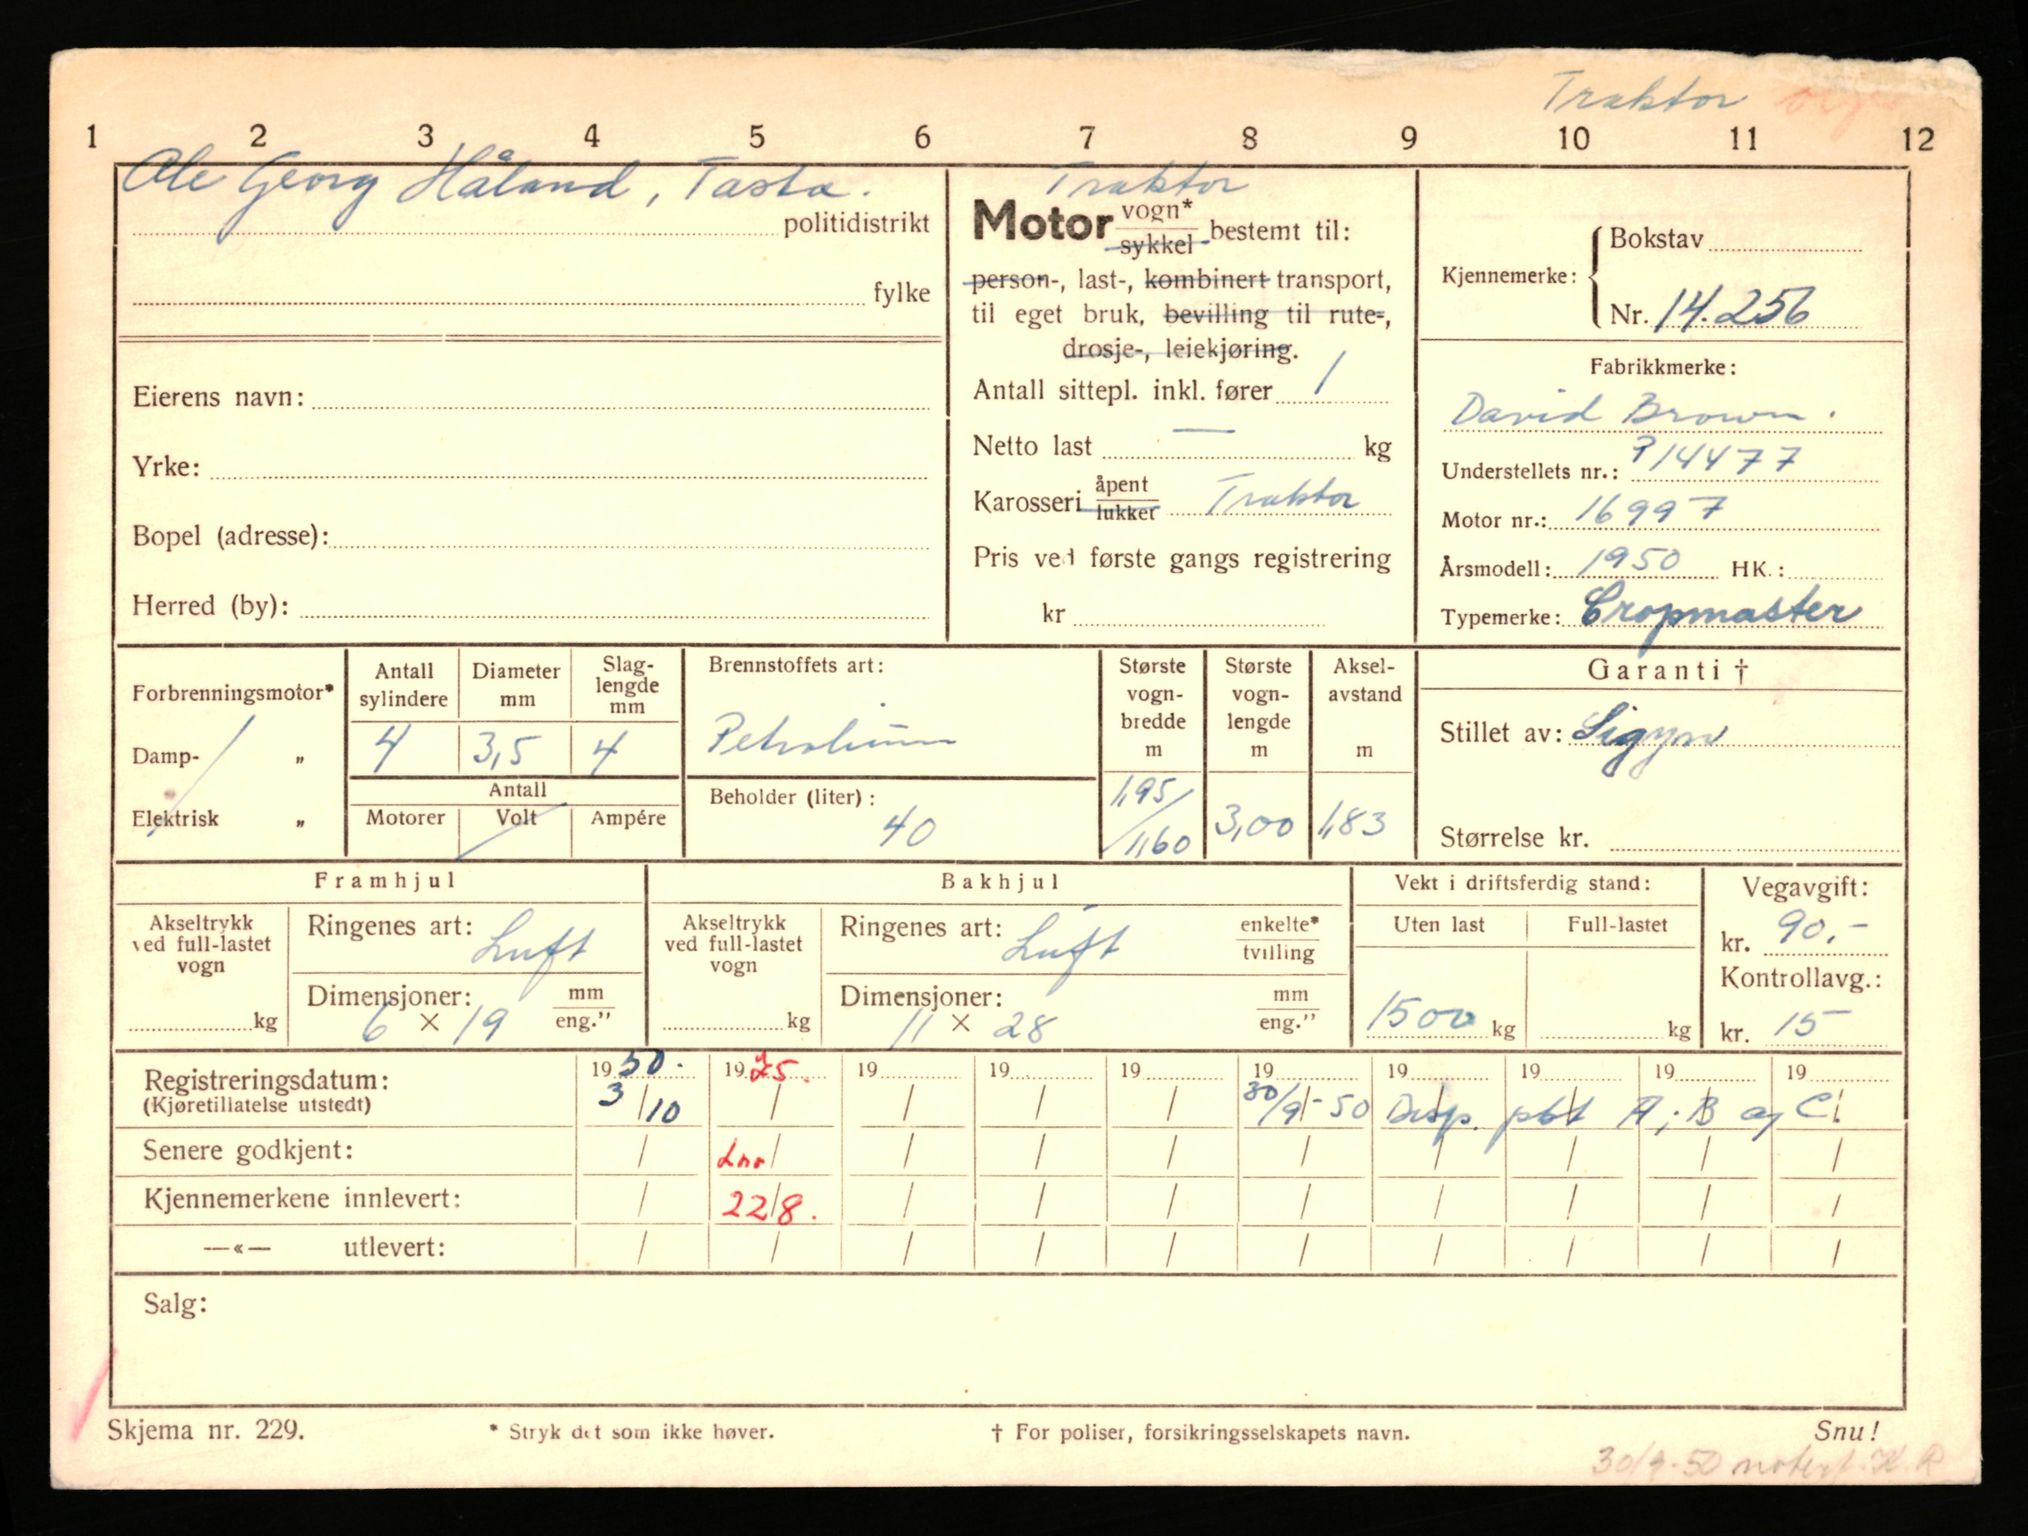 Traktor
1 2 3 4 5 6 7 8 9 10 11 12
Ole Georg Håland, Tasta.
politidistrikt
fylke
Eierens navn:
Yrke:
Bopel (adresse):
Herred (by):
Traktor
Motor vogn* sykkel bestemt til:
person-, last-, kombinert transport,
til eget bruk, bevilling til rute-,
drosje-, leiekjøring.
Antall sittepl. inkl. fører 1
Netto last — kg
Karosseri åpent lukket Traktor
Pris ved første gangs registrering
kr
Kjennemerke: { Bokstav
Nr. 14.256
Fabrikkmerke:
David Brown.
Understellets nr.: P14477
Motor nr.: 16997
Årsmodell: 1950 HK.:
Typemerke: Cropmaster
Forbrenningsmotor*
Damp- „
Elektrisk „
Antall sylindere 4
Diameter mm 3,5
Slag-lengde mm 4
Antall
Motorer Volt Ampére
Brennstoffets art:
Petroleum
Beholder (liter):
40
Største vogn-bredde m
1,95/1,60
Største vogn-lengde m
3,00
Aksel-avstand m
1,83
Garanti †
Stillet av: Sigyn
Størrelse kr.
Framhjul
Akseltrykk ved full-lastet vogn
kg
Ringenes art: Luft
Dimensjoner: mm eng."
6 × 19
Bakhjul
Akseltrykk ved full-lastet vogn
kg
Ringenes art: Luft enkelte* tvilling
Dimensjoner: mm eng."
11 × 28
Vekt i driftsferdig stand:
Uten last Full-lastet
1500 kg kg
Vegavgift:
kr. 90,-
Kontrollavg.:
kr. 15
19 50. 19 75. 19 19 19 19 19 19 19 19
Registreringsdatum: 3/10 / / / / 30/9-50 Disp. pkt A, B og C.
(Kjøretillatelse utstedt)
Senere godkjent: / / / / / / / / / /
Kjennemerkene innlevert: / 22/8. / / / / / / / /
—«— utlevert: / / / / / / / / / /
Salg:
Skjema nr. 229. * Stryk det som ikke høver. † For poliser, forsikringsselskapets navn. Snu!
30/9-50 notert. K. R